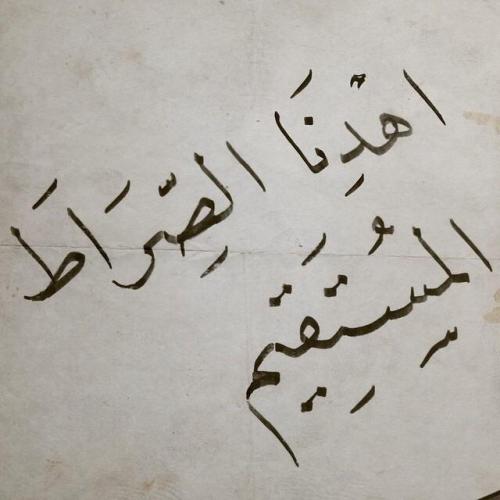 اهْدِنَا الصِّرَاطَ
المُسْتَقِيم